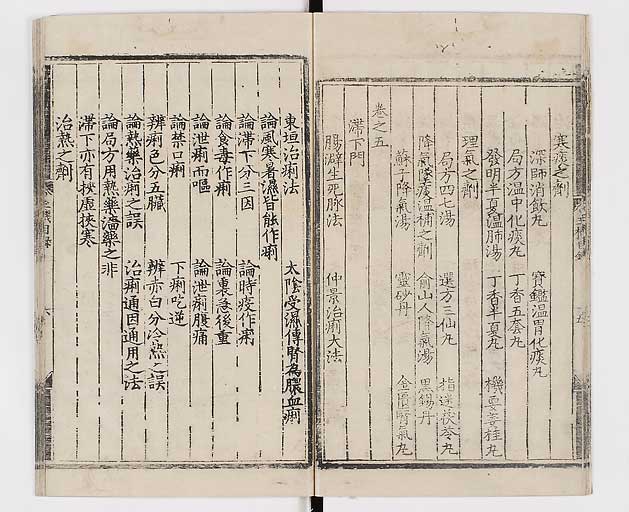 寒痰之劑
深師消飲丸 寶鑑温胃化痰丸
局方温中化痰丸 丁香五套丸
發明半夏温肺湯 丁香半夏丸 機要姜桂丸
理氣之劑
局方四七湯 選方三仙丸 指迷茯苓丸
降氣墜痰温補之劑 俞山人降氣湯 黒錫丹
蘇子降氣湯 靈砂丹 金匱腎氣丸
卷之五
滯下門
腸澼生死脉法 仲景治痢大法
東垣治痢法 太陰受濕傳腎為膿血痢
論風寒暑濕皆能作痢
論滯下分三因 論時疫作痢
論食毒作痢 論裏急後重
論泄痢而嘔 論泄痢腹痛
論禁口痢 下痢吃逆
辨痢色分五臟 辨赤白分冷熱之誤
論熱藥治痢之誤 治痢通因通用之法
論局方用熱藥濇藥之非
滯下亦有挾虚挾寒
治熱之劑